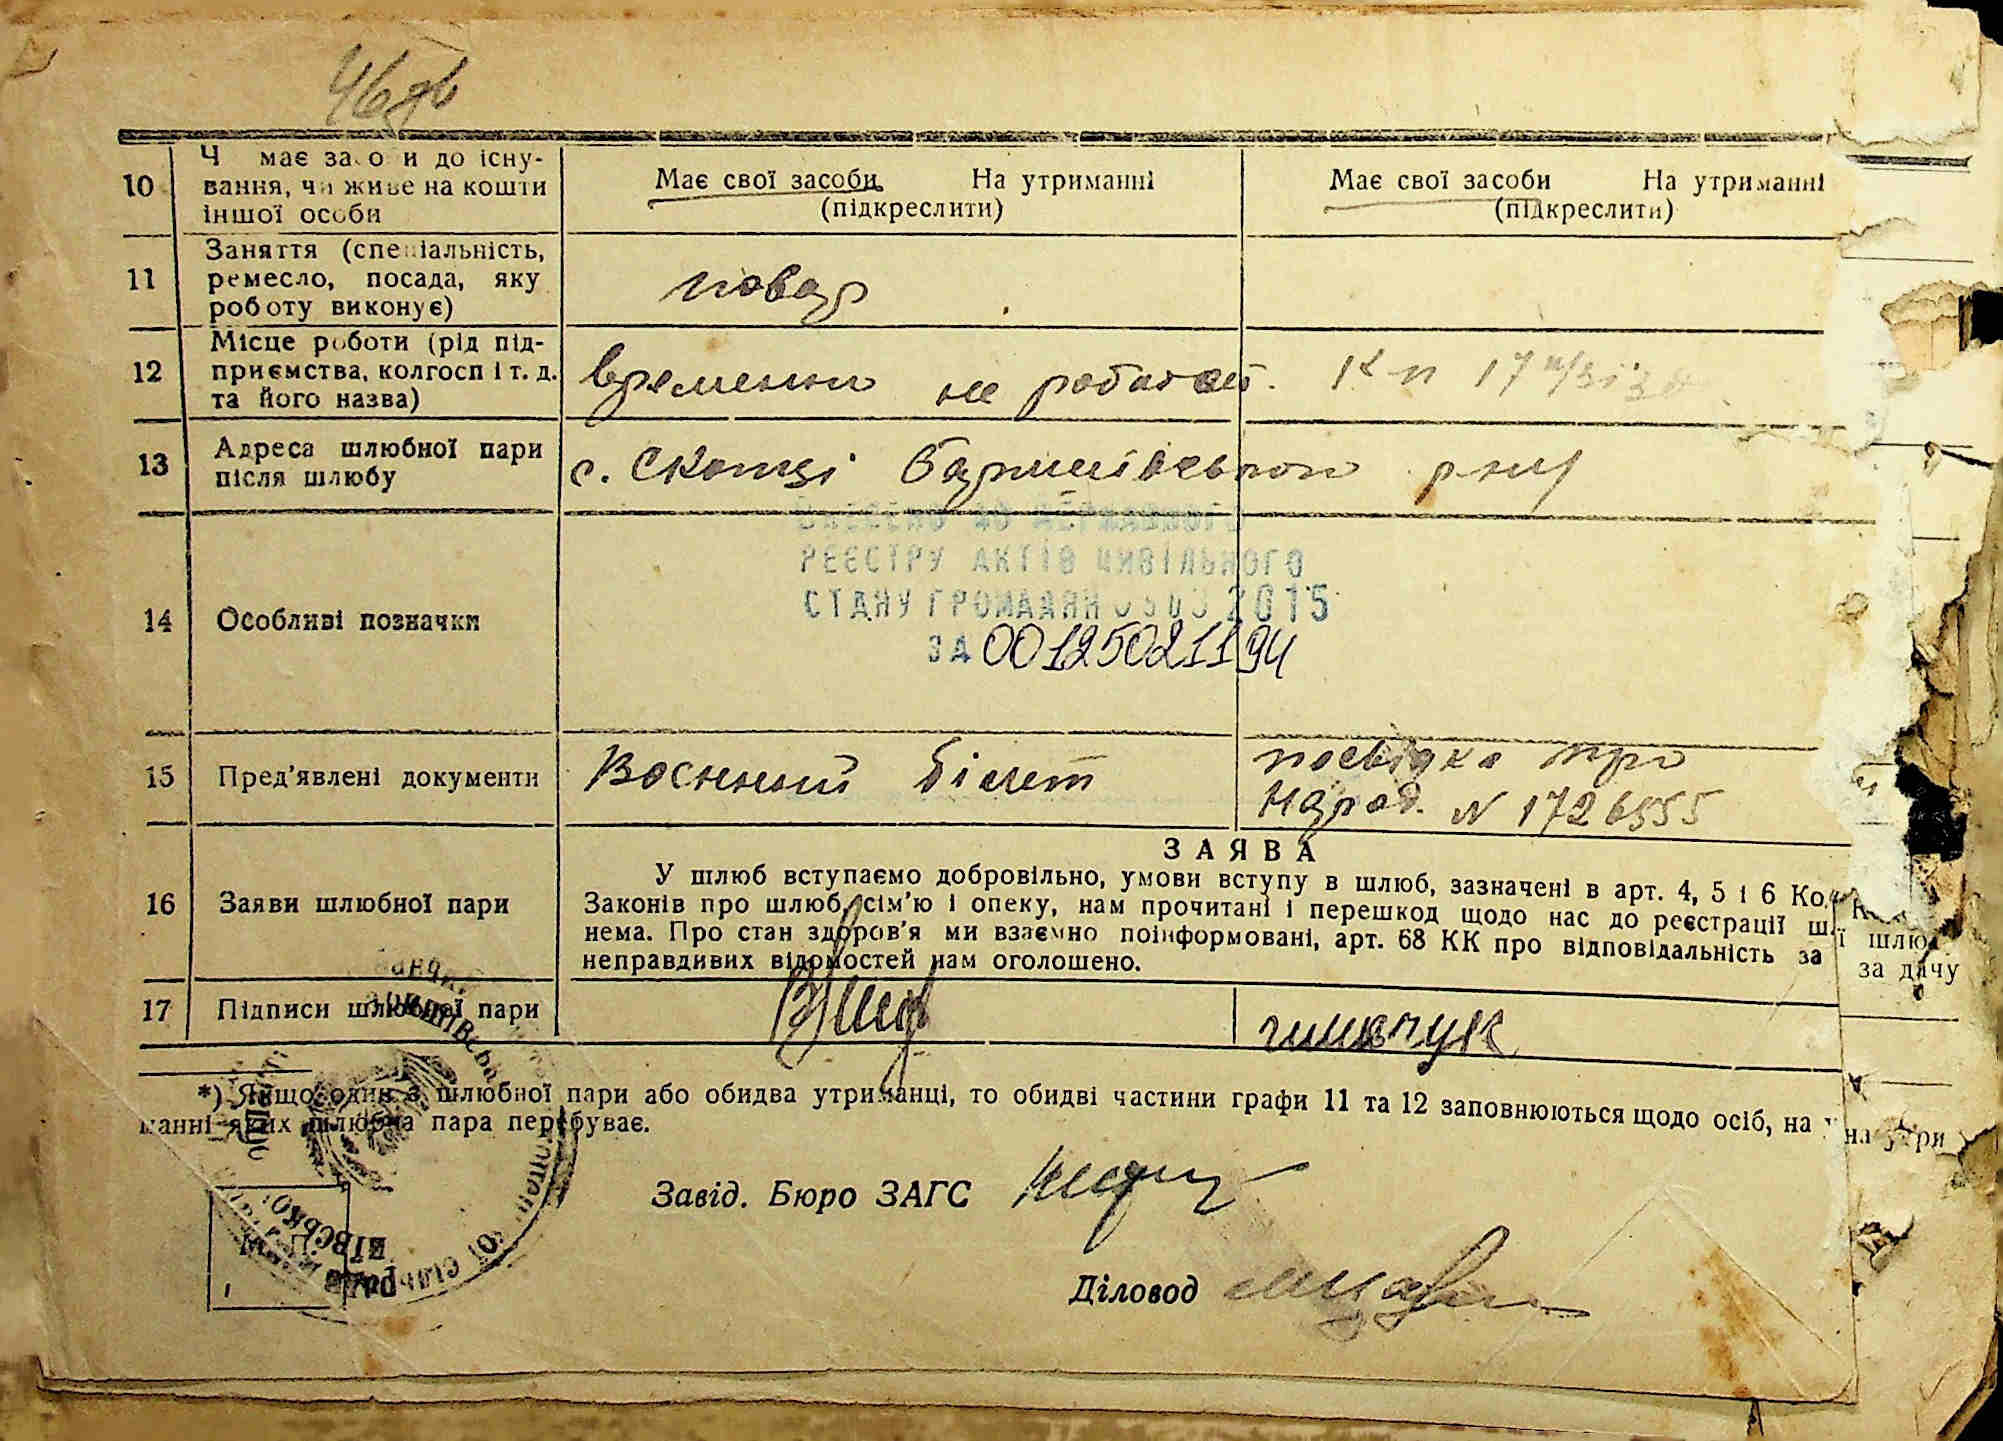 10
Ч має за о и до існу-
вання, чи живе на кошти
іншої особи
Має свої засоби На утриманні
(підкреслити)
Має свої засоби На утриманні
(підкреслити)
11
Заняття (спеціальність,
ремесло, посада, яку
роботу виконує)
повар
12
Місце роботи (рід під-
приємства, колгосп і т. д.
та його назва)
временно не работает.
17
13
Адреса шлюбної пари
після шлюбу
с.
14
Особливі позначки
РЕЄСТРУ АКТІВ ЦИВІЛЬНОГО
СТАНУ ГРОМАДЯН 2015
ЗА 00125021194
15
Пред'явлені документи
Воєнный білет
посвідка про
Народ. N 1726555
16
Заяви шлюбної пари
ЗАЯВА
У шлюб вступаємо добровільно, умови вступу в шлюб, зазначені в арт. 4, 5 і 6
Законів про шлюб, сім'ю і опеку, нам прочитані і перешкод щодо нас до реєстрації
нема. Про стан здоров'я ми взаємно поінформовані, арт. 68 КК про відповідальність за
неправдивих відомостей нам оголошено.
шлю
за дачу
17
Підписи шлюбної пари
*) Якщо один з шлюбної пари або обидва утриманці, то обидві частини графи 11 та 12 заповнюються щодо осіб, на
манні яких шлюбна пара перебуває.
Завід. Бюро ЗАГС
Діловод